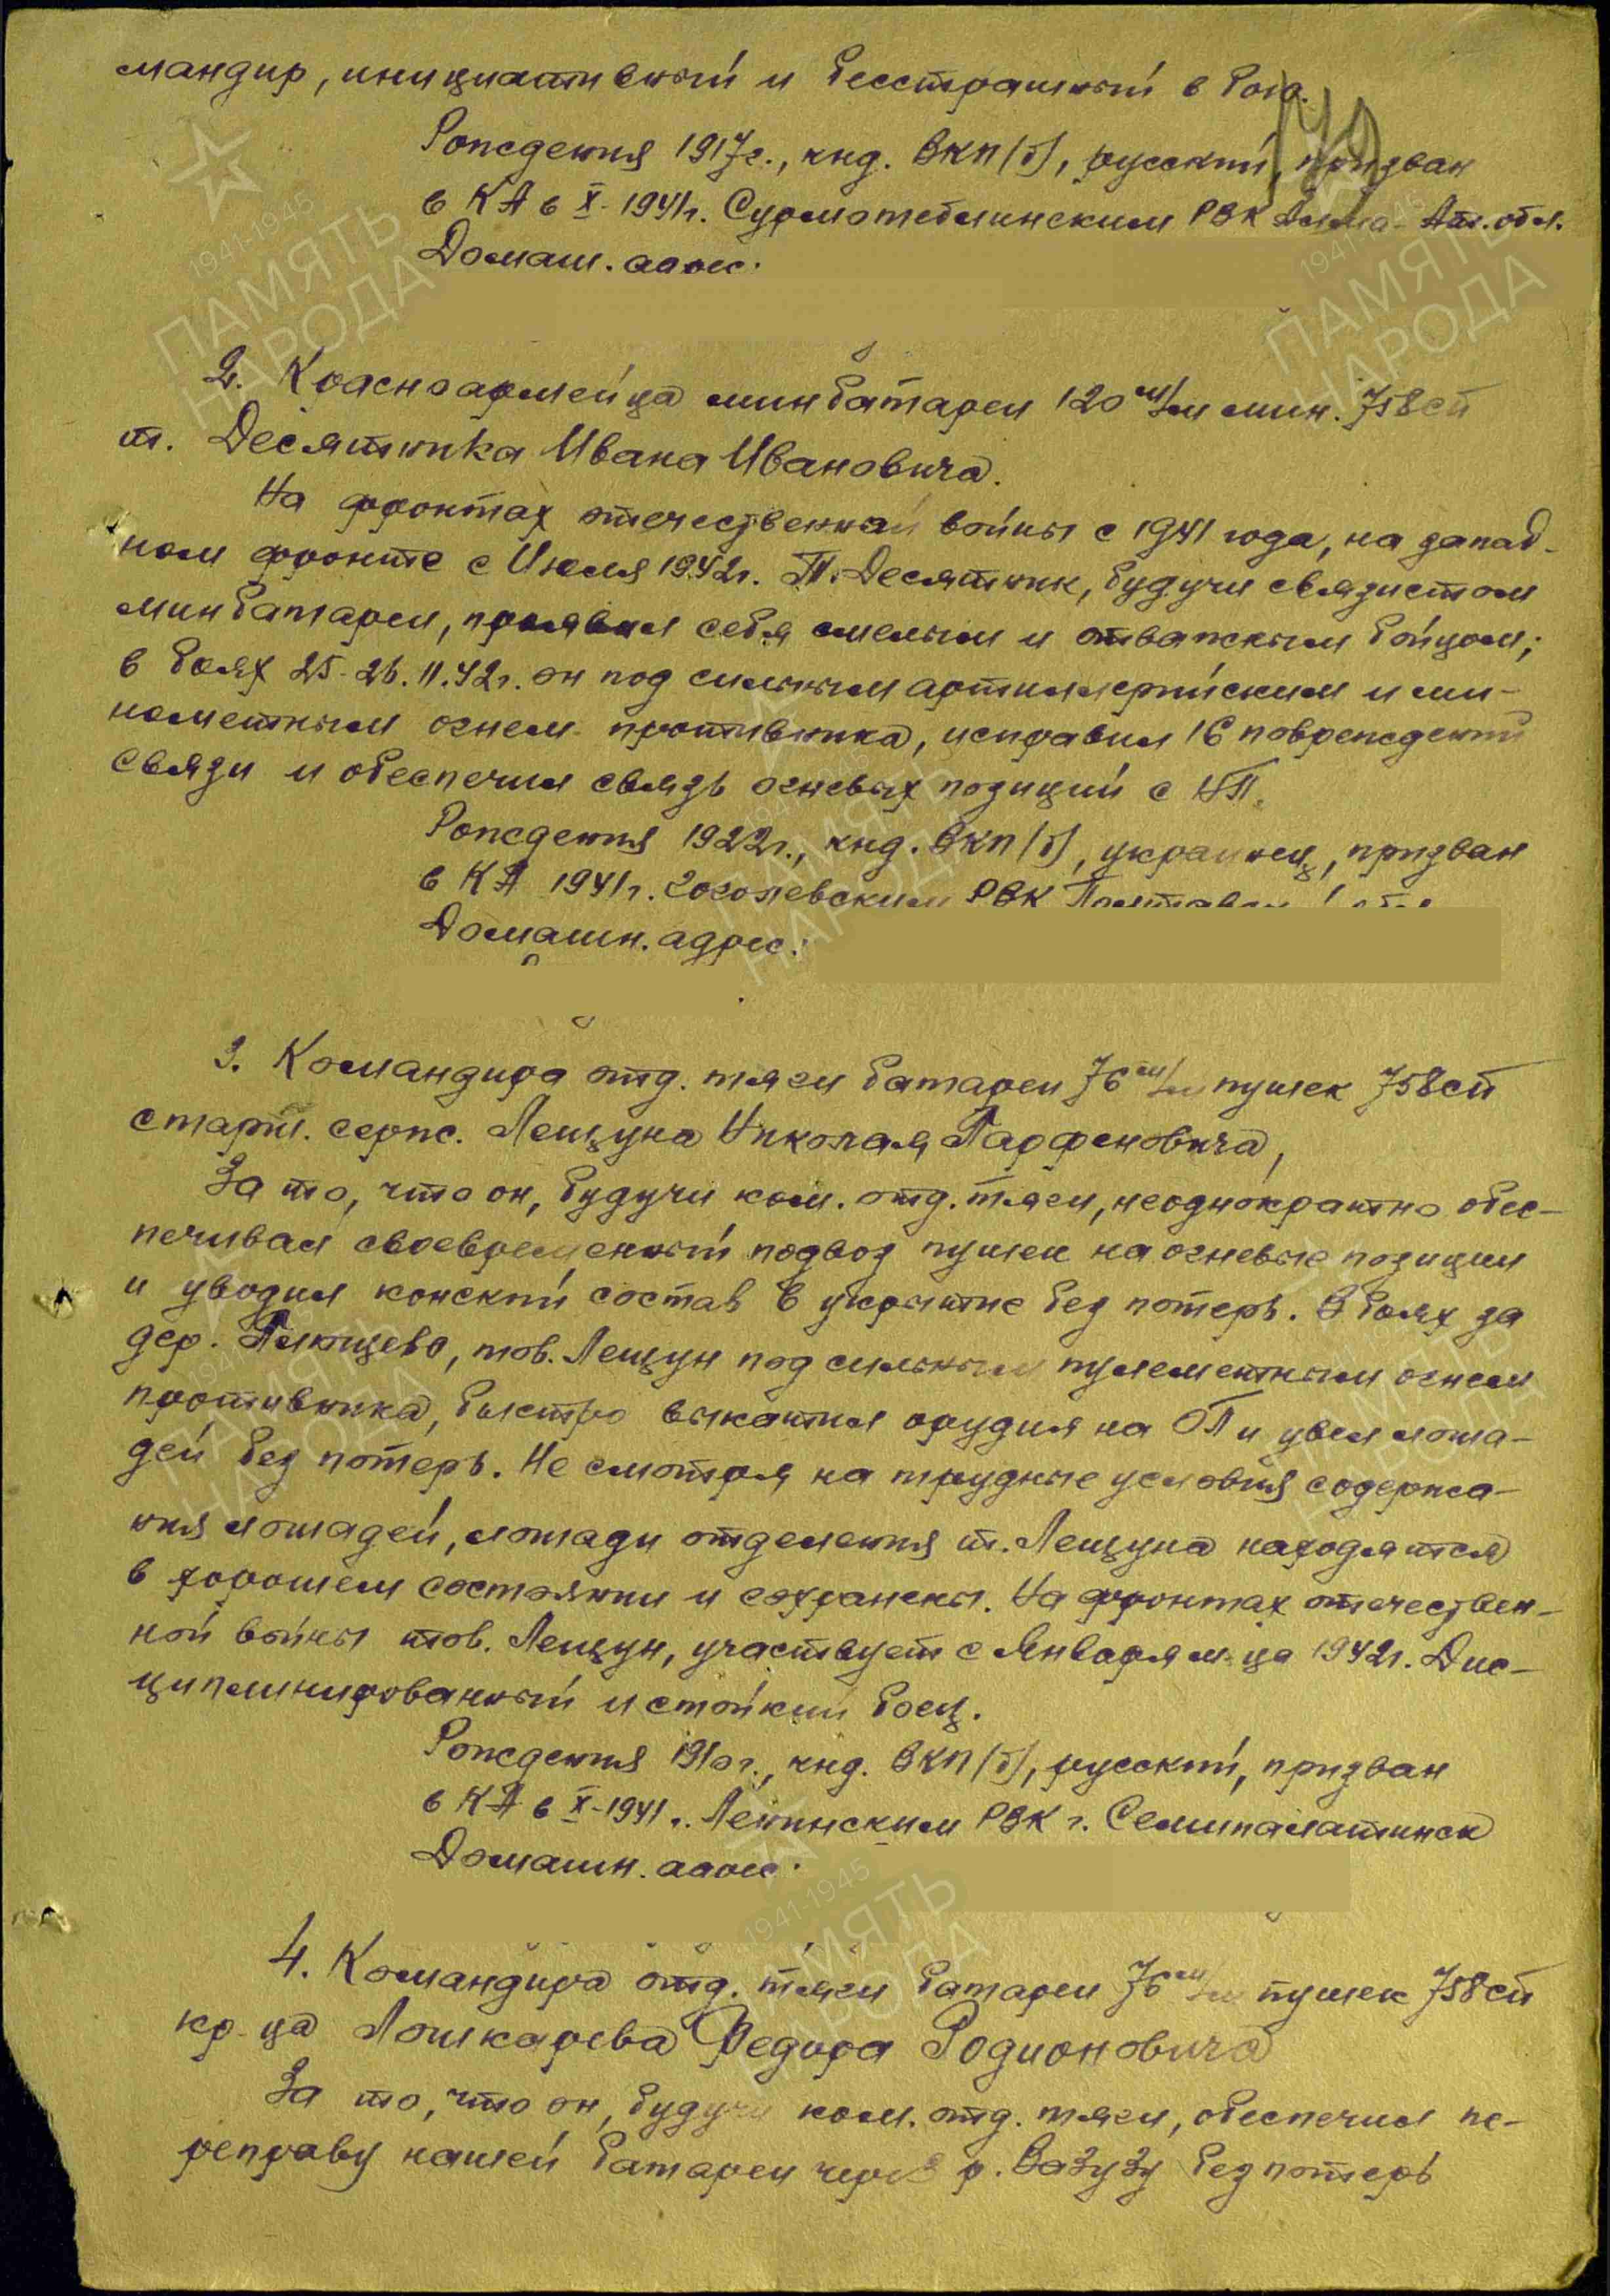 мандир, инициативный и бесстрашный в бою.
Рождения 1917г., кнд. ВКП/б/, русский, призван
в КА в X-1941г. РВК Алма-Ат. обл.
Домаш. адрес:
2. Красноармейца минбатареи 120 м/м мин. 758сп
т. Десятника Ивана Ивановича.
На фронтах отечественной войны с 1941 года, на запад-
ном фронте с Июля 1942г. Т. Десятник, будучи связистом
минбатареи, проявил себя смелым и отважным бойцом;
в боях 25-26.11.42г. он под сильным артиллерийским и ми-
нометным огнем противника, исправил 16 повреждений
связи и обеспечил связь огневых позиций с НП.
Рождения 1922г., кнд. ВКП/б/, украинец, призван
в КА 1941г. Гоголевским РВК
Домашн. адрес:
3. Командира отд. тяги батареи 76 м/м пушек 758сп
старш. серж. Лещуна Николая Парфеновича,
За то, что он, будучи ком. отд. тяги, неоднократно обес-
печивал своевременный подвоз пушек на огневые позиции
и уводил конский состав в укрытие без потерь. В боях за
дер. тов. Лещун под сильным пулеметным огнем
противника, быстро выкатил орудия на ОП и увел лоша-
дей без потерь. Не смотря на трудные условия содержа-
ния лошадей, лошади отделения т. Лещуна находятся
в хорошем состоянии и сохранены. На фронтах отечествен-
ной войны тов. Лещун, участвует с Января м-ца 1942г. Дис-
циплинированный и стойкий боец.
Рождения 1910г., кнд. ВКП/б/, русский, призван
в КА в X-1941г. Ленинским РВК г. Семипалатинск
Домашн. адрес:
4. Командира отд. тяги батареи 76 м/м пушек 758сп
кр-ца Лошкарева Федора Родионовича
За то, что он, будучи ком. отд. тяги, обеспечил пе-
реправу нашей батареи через р. Вазузу без потерь
1941-1945
ПАМЯТЬ
НАРОДА